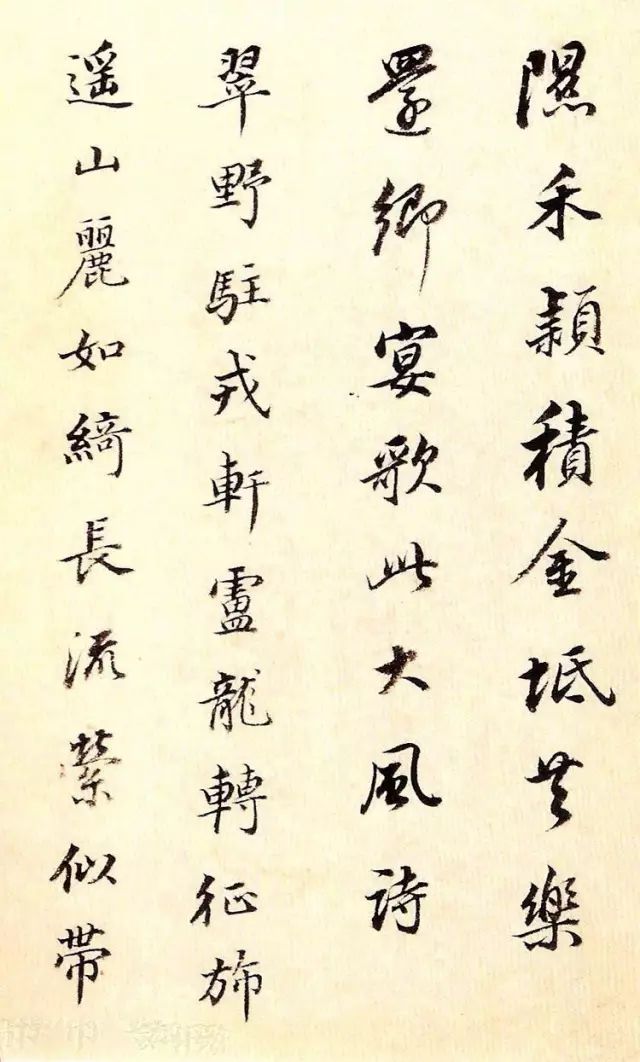 隰禾穎積金坻共樂
還鄉宴歌此大風詩
翠野駐戎軒盧龍轉征旆
遙山麗如綺長流縈似帶